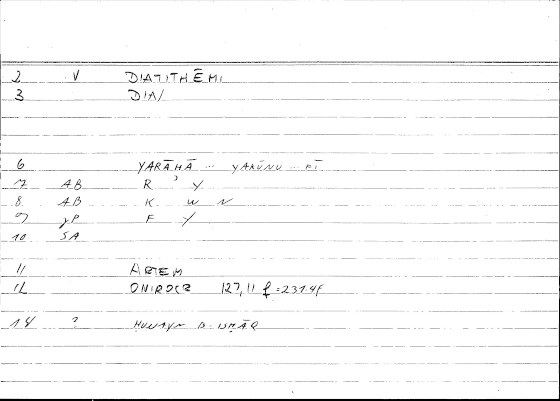 2 V DIATITHĒMI
3 DIA/
6 YARĀHĀ ... YAKŪNU ... FĪ
7 AB R ʾ Y
8 AB K W N
9 γP F Y
10 SA
11 ARTEM
12 ONIROCR 127,11 f = 231.4f
14 ? ḤUNAYN B. ISḤĀQ